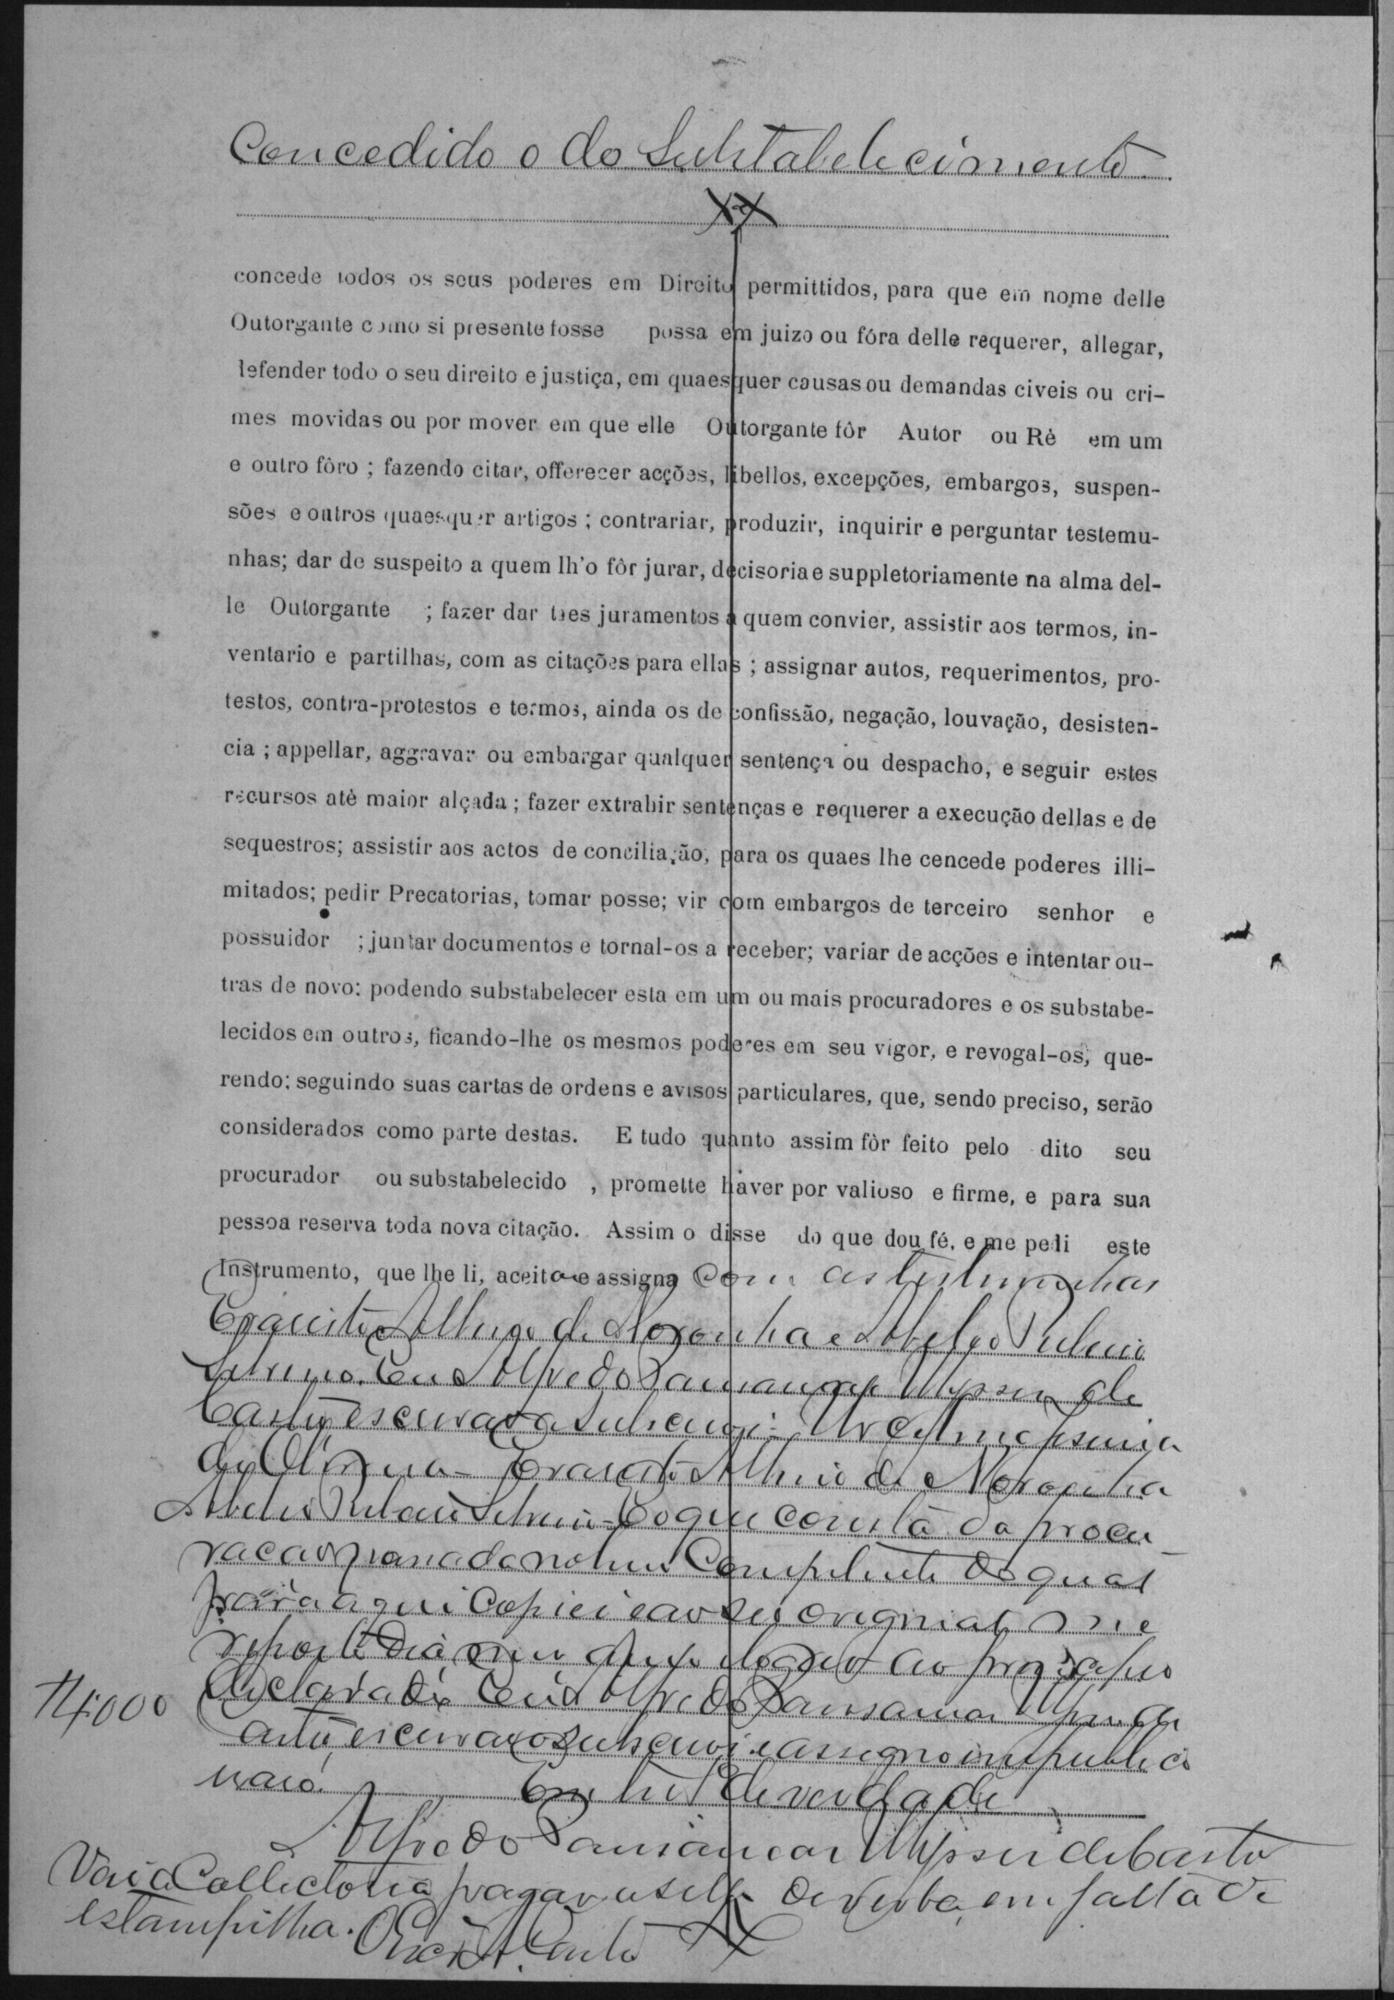 Concedido o do Substabelecimento.
concede todos os seus poderes em Direito permittidos, para que em nome delle
Outorgante como si presente fosse possa em juizo ou fóra delle requerer, allegar,
lefender todo o seu direito e justiça, em quaesquer causas ou demandas civeis ou cri-
mes movidas ou por mover em que elle Outorgante fôr Autor ou Ré em um
e outro fôro ; fazendo citar, offerecer acções, libellos, excepções, embargos, suspen-
sões e outros quaesquer artigos ; contrariar, produzir, inquirir e perguntar testemu-
nhas; dar de suspeito a quem lh'o fôr jurar, decisoria e suppletoriamente na alma del-
le Outorgante ; fazer dar taes juramentos a quem convier, assistir aos termos, in-
ventario e partilhas, com as citações para ellas ; assignar autos, requerimentos, pro-
testos, contra-protestos e termos, ainda os de confissão, negação, louvação, desisten-
cia ; appellar, aggravar ou embargar qualquer sentença ou despacho, e seguir estes
recursos até maior alçada ; fazer extrahir sentenças e requerer a execução dellas e de
sequestros; assistir aos actos de conciliação, para os quaes lhe cencede poderes illi-
mitados; pedir Precatorias, tomar posse; vir com embargos de terceiro senhor e
possuidor ; juntar documentos e tornal-os a receber; variar de acções e intentar ou-
tras de novo: podendo substabelecer esta em um ou mais procuradores e os substabe-
lecidos em outros, ficando-lhe os mesmos poderes em seu vigor, e revogal-os, que-
rendo: seguindo suas cartas de ordens e avisos particulares, que, sendo preciso, serão
considerados como parte destas. E tudo quanto assim fôr feito pelo dito seu
procurador ou substabelecido , promette haver por valioso e firme, e para sua
pessoa reserva toda nova citação. Assim o disse do que dou fé, e me pedi este
Instrumento, que lhe li, aceitou e assigna com as testemunhas
de Noronha e
Eu Alfredo Ulysses de
Castro escrivão subscrevi.
de Noronha
que consta da procu
ração competente do qual
para aqui copiei e ao seu original me
reporto dia
declarado. Eu Alfredo
astro, escrivão o subscrevi e assigno em publico
e raso.
Em tes.º de verdade
4000
Alfredo Ulysses de Castro
Vai a Collectoria pagar o sello de verba, em falta de
estampilha. O Escr. A. Castro